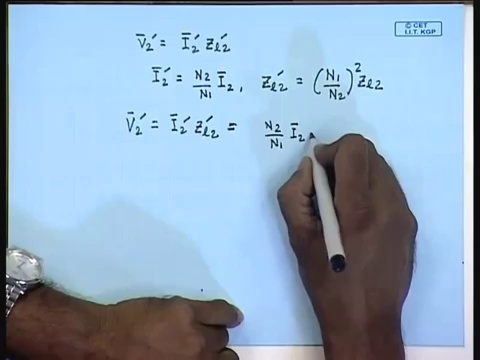 © CET
I.I.T. KGP
V̄₂′ = Ī₂′ Z̄ℓ₂′
Ī₂′ = N₂/N₁ Ī₂, Z̄ℓ₂′ = (N₁/N₂)² Z̄ℓ₂
V̄₂′ = Ī₂′ Z̄ℓ₂′ = N₂/N₁ Ī₂